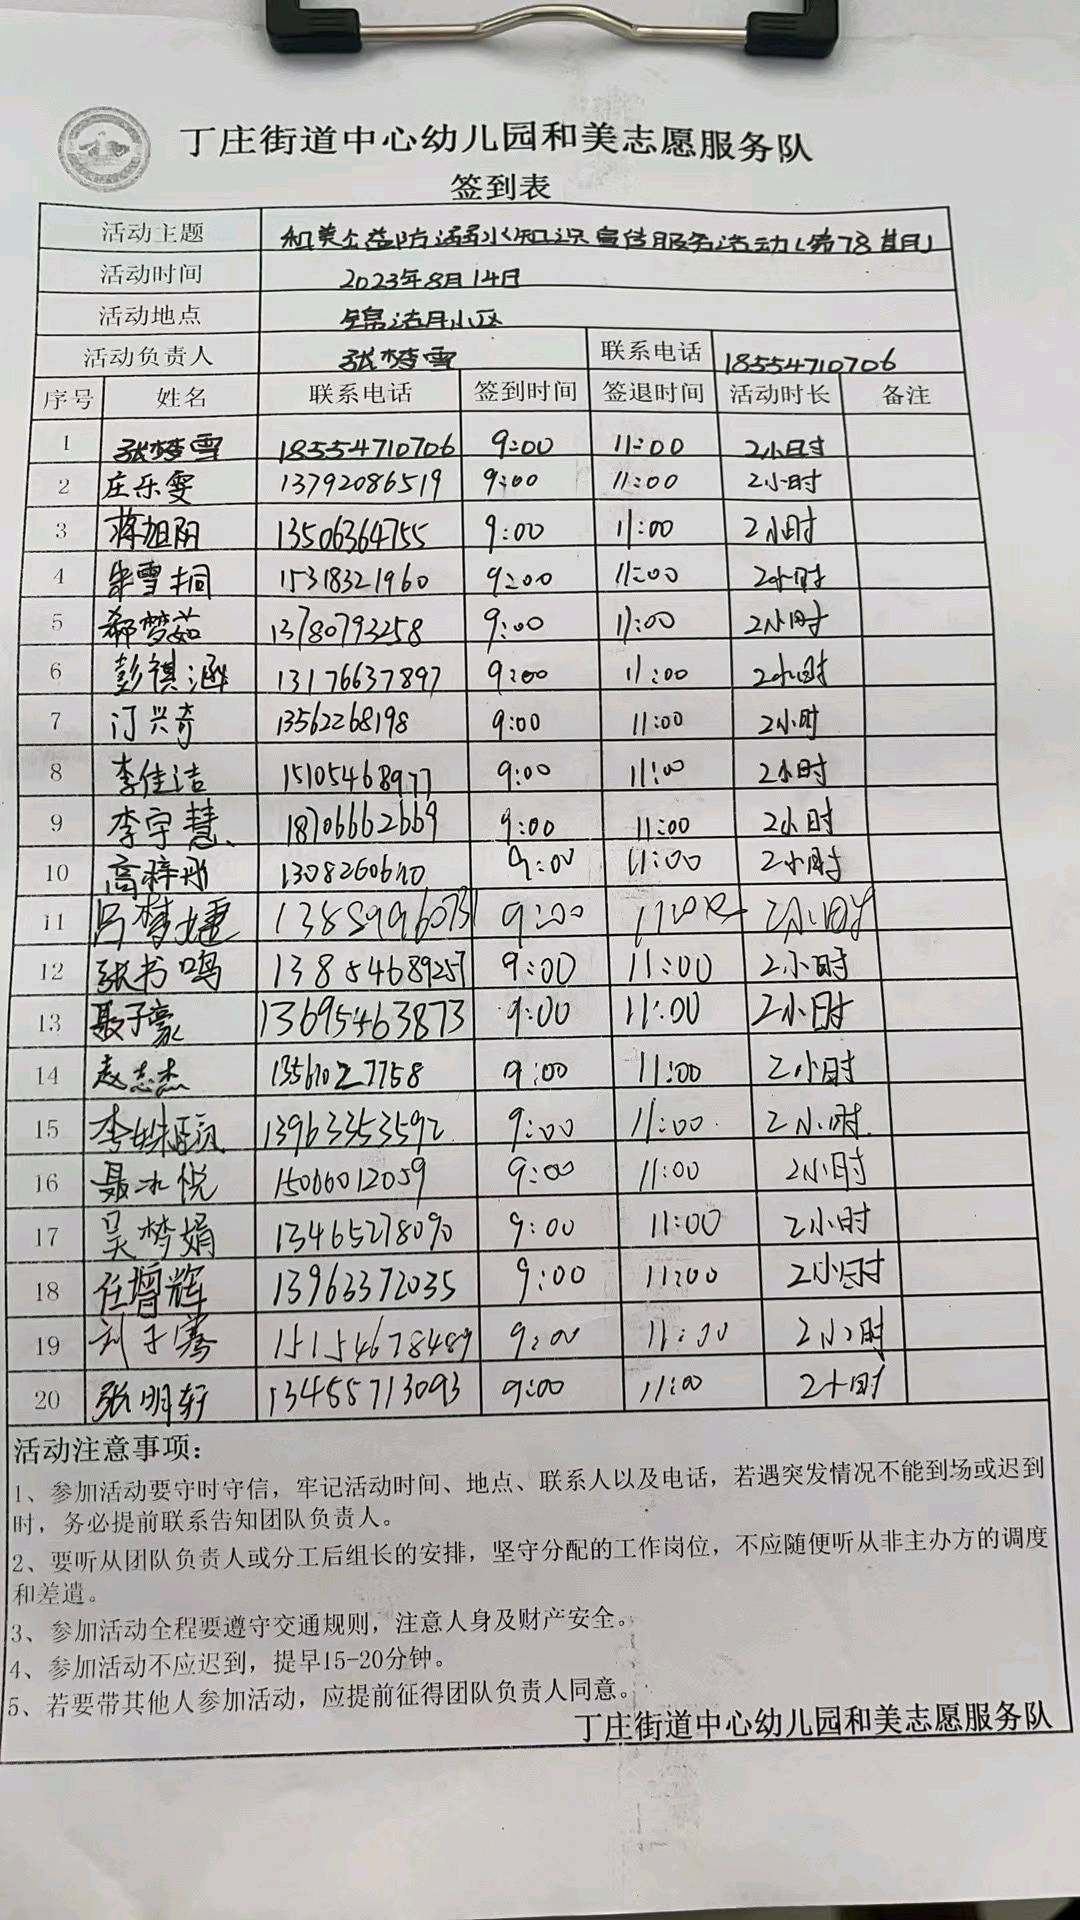 丁庄街道中心幼儿园和美志愿服务队
签到表
活动主题 和美公益防溺水知识宣传服务活动(第78期)
活动时间 2023年8月14日
活动地点 锦洁月小区
活动负责人 张梦雪 联系电话 18554710706
序号 姓名 联系电话 签到时间 签退时间 活动时长 备注
1 张梦雪 18554710706 9:00 11:00 2小时
2 庄乐雯 13792086519 9:00 11:00 2小时
3 蒋旭阳 13506364755 9:00 11:00 2小时
4 朱雪桐 15318321960 9:00 11:00 2小时
5 郗梦茹 13780793258 9:00 11:00 2小时
6 彭祺涵 13176637897 9:00 11:00 2小时
7 门兴奇 13562268198 9:00 11:00 2小时
8 李佳洁 15105468977 9:00 11:00 2小时
9 李宇慧 18706662669 9:00 11:00 2小时
10 高梓彤 9:00 11:00 2小时
11 吕梦婕 13889996073 9:00 2小时
12 张书鸣 13854689257 9:00 11:00 2小时
13 聂子豪 13695463873 9:00 11:00 2小时
14 赵志杰 13561027758 9:00 11:00 2小时
15 李姝颐 13963353592 9:00 11:00 2小时
16 聂冰悦 15066012059 9:00 11:00 2小时
17 吴梦娟 13465278090 9:00 11:00 2小时
18 任增辉 13963372035 9:00 11:00 2小时
19 刘子骞 15154678489 9:00 11:00 2小时
20 张明轩 13455713093 9:00 11:00 2小时
活动注意事项：
1、参加活动要守时守信，牢记活动时间、地点、联系人以及电话，若遇突发情况不能到场或迟到
时，务必提前联系告知团队负责人。
2、要听从团队负责人或分工后组长的安排，坚守分配的工作岗位，不应随便听从非主办方的调度
和差遣。
3、参加活动全程要遵守交通规则，注意人身及财产安全。
4、参加活动不应迟到，提早15-20分钟。
5、若要带其他人参加活动，应提前征得团队负责人同意。
丁庄街道中心幼儿园和美志愿服务队